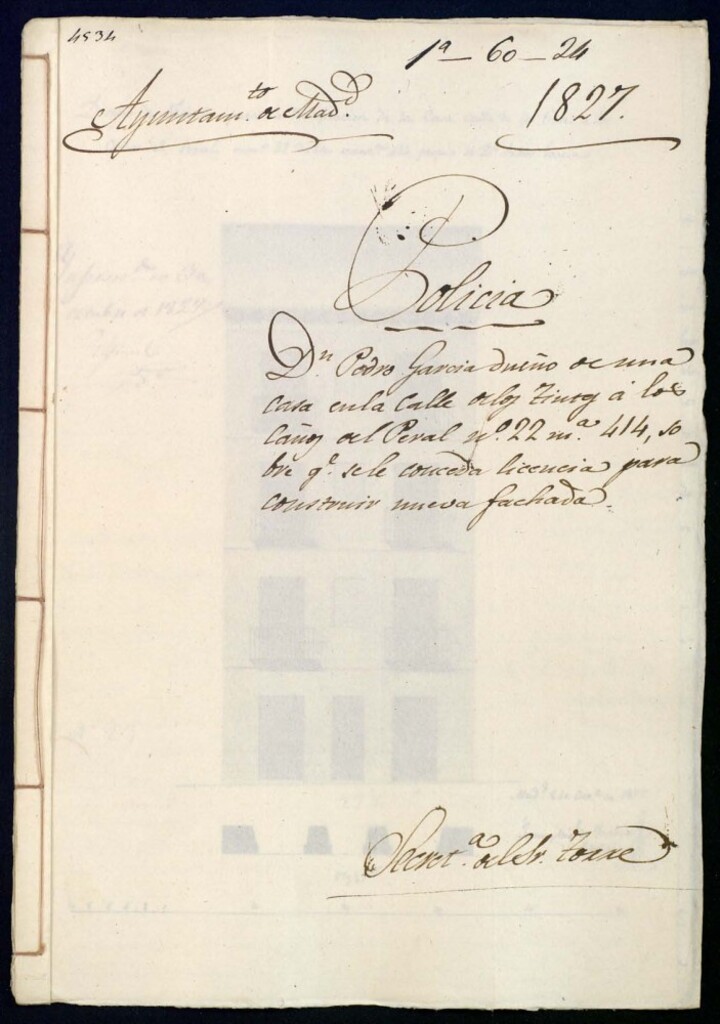 4534
1ª - 60 - 24
Ayuntam.to de Mad.d
1827.
Policia
D.n Pedro Garcia dueño de una
casa en la Calle de los Tintes á los
Caños del Peral nº. 22 m.ª 414, so
bre q.e se le conceda licencia para
construir nueva fachada.
Secret.ª del Sr. Torre